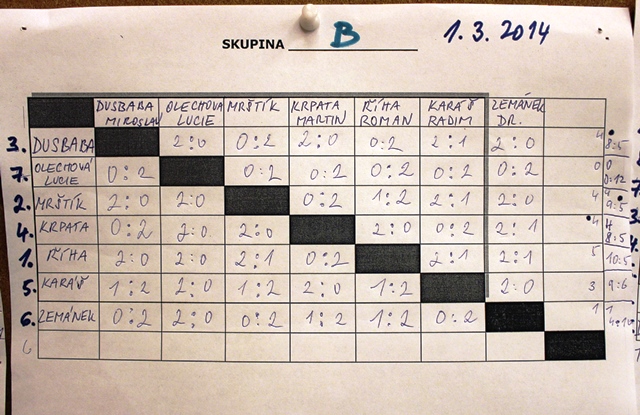 SKUPINA B 1. 3. 2014
DUSBABA MIROSLAV OLECHOVÁ LUCIE MRŠTÍK KRPATA MARTIN ŘÍHA ROMAN KARÁŠ RADIM ZEMÁNEK DR.
3. DUSBABA 2:0 0:2 2:0 0:2 2:1 2:0 4 8:5
7. OLECHOVÁ LUCIE 0:2 0:2 0:2 0:2 0:2 0:2 0 0 0:12
2. MRŠTÍK 2:0 2:0 0:2 1:2 2:1 2:0 4 4 9:5
4. KRPATA 0:2 2:0 2:0 2:0 0:2 2:1 4 4 8:5
1. ŘÍHA 2:0 2:0 2:1 0:2 2:1 2:1 5 10:5
5. KARÁŠ 1:2 2:0 1:2 2:0 1:2 2:0 3 9:6
6. ZEMÁNEK 0:2 2:0 0:2 1:2 1:2 0:2 1 1 4:10